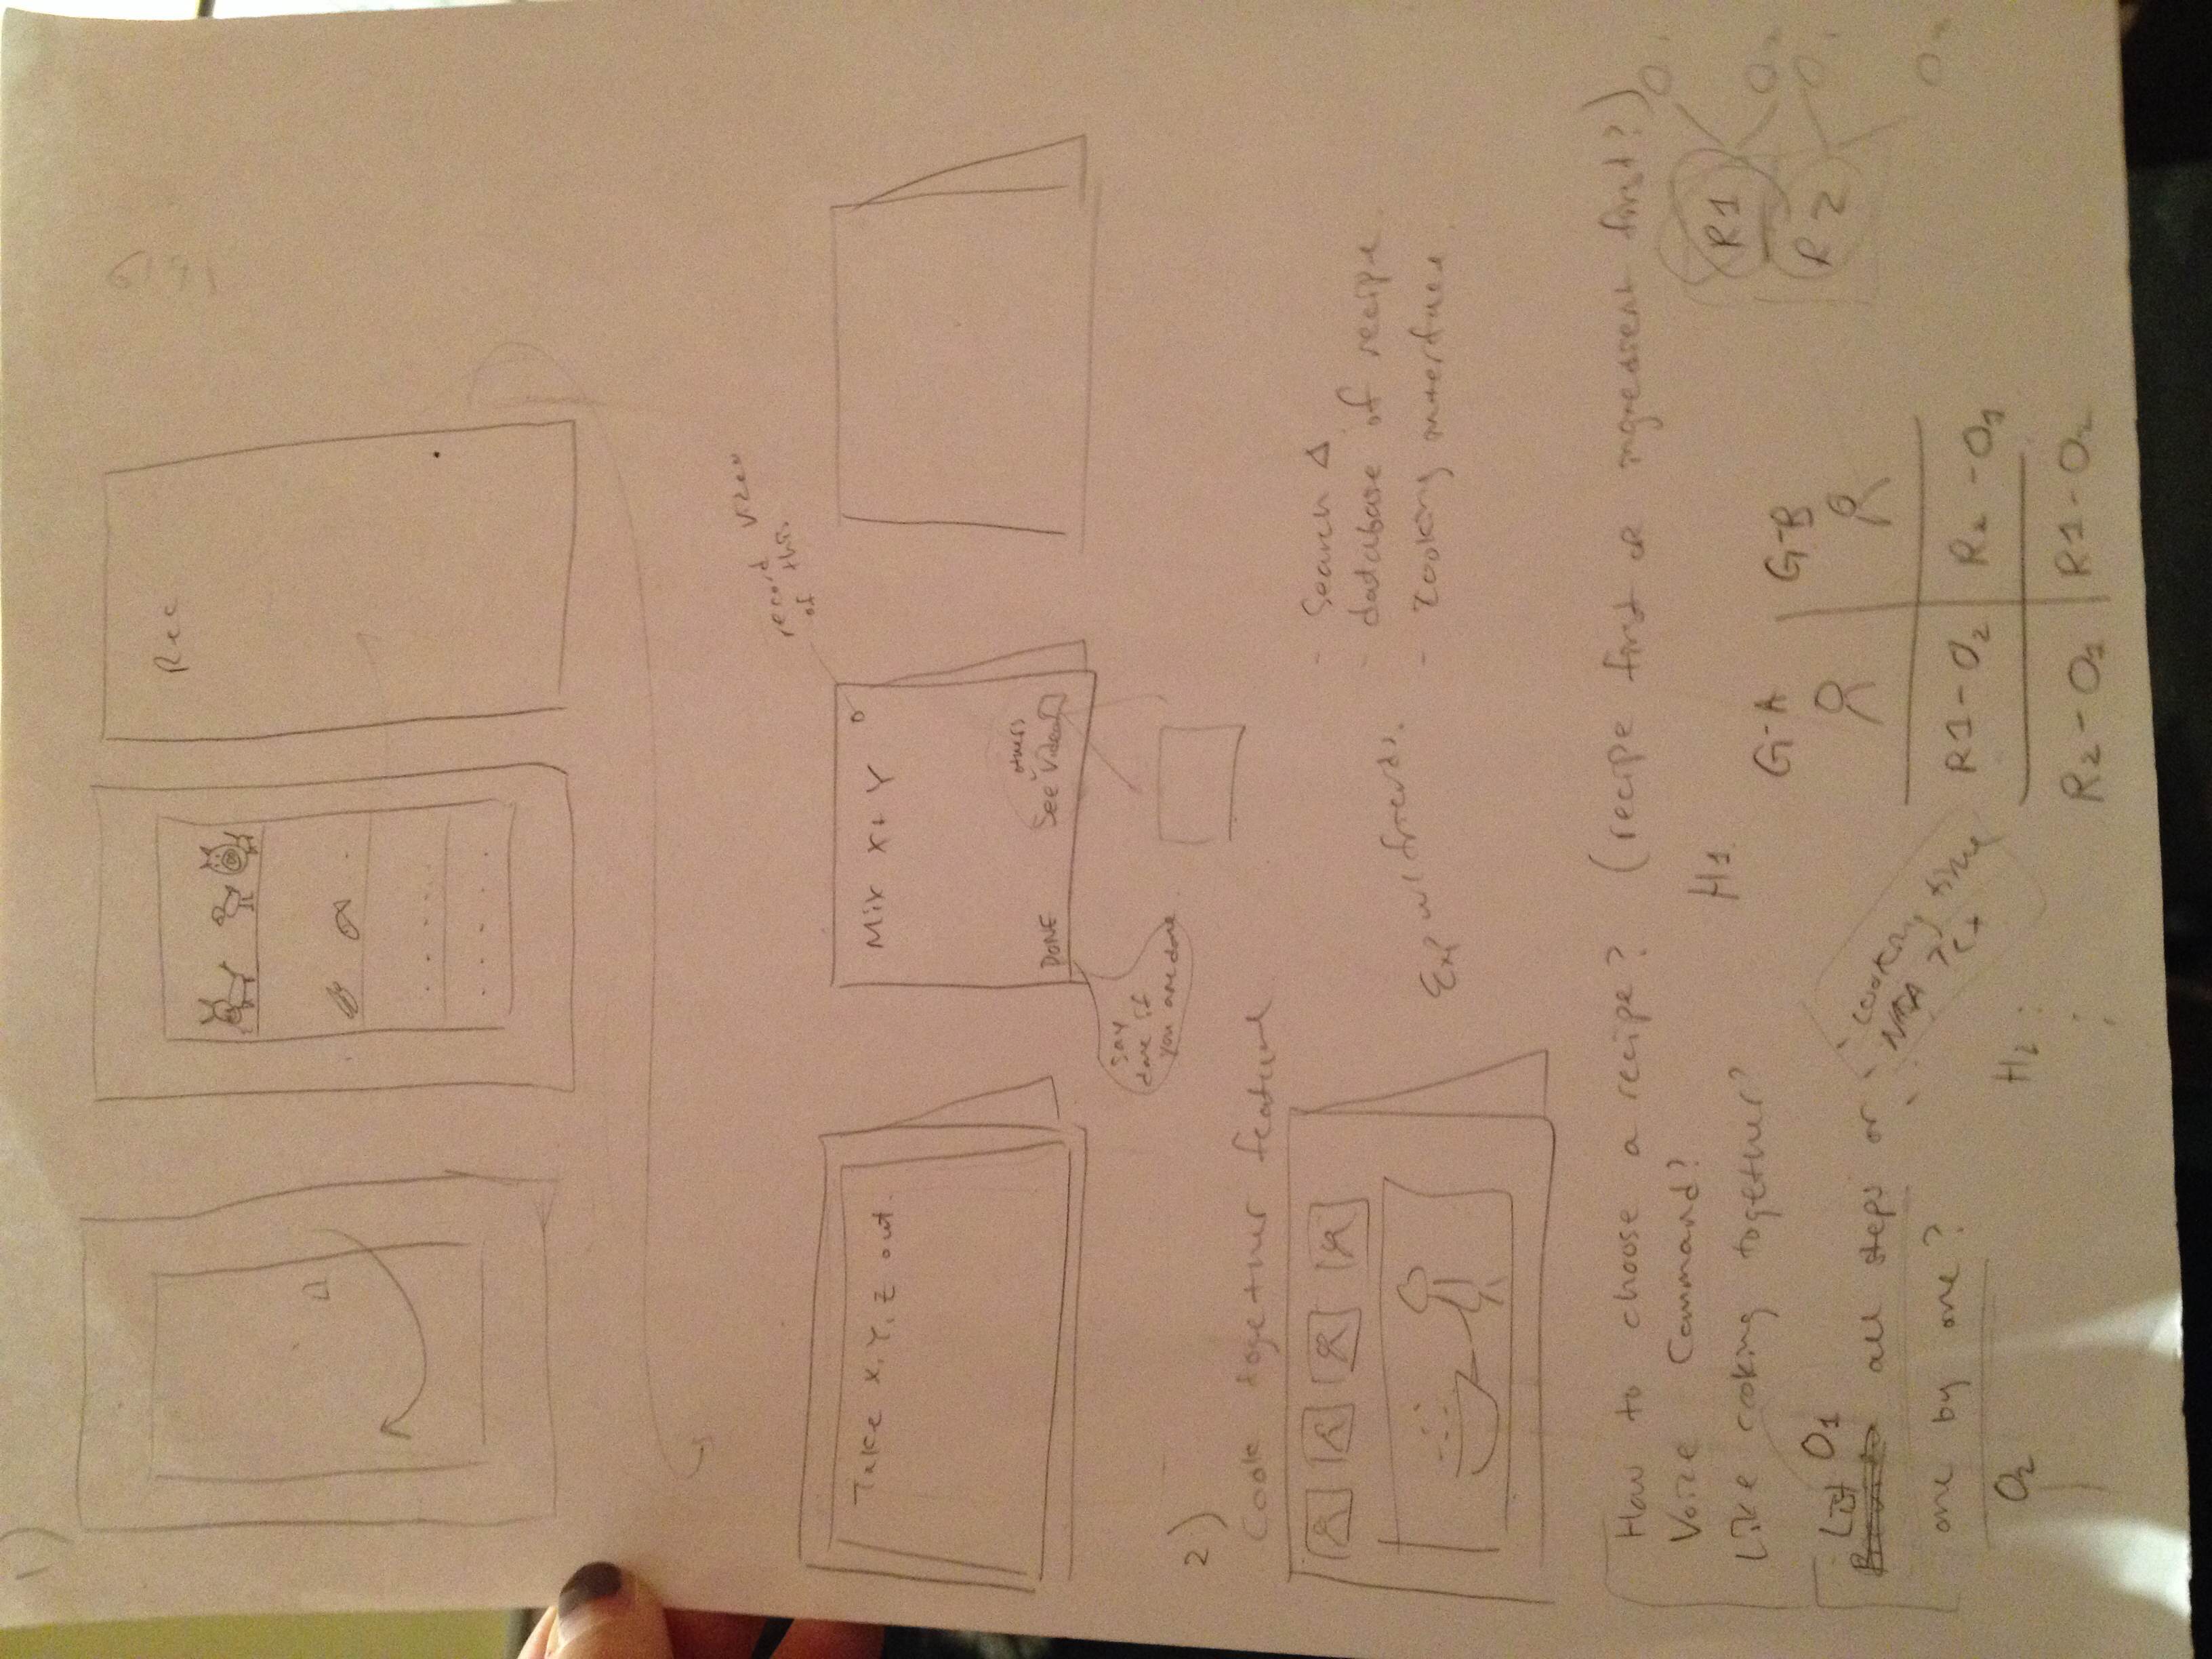 1)
Rec
record video
of this
Take X, Y, Z out.
Mix X + Y
DONE
others
See Video
say
done if
you are done
2)
Cook together feature
Exp w/ friends.
- Search Δ
- database of recipe
- Cooking interface
How to choose a recipe? (recipe first or ingredient first?)
Voice Command?
Like cooking together?
List O1
all steps or
one by one?
O2
cooking time
NASA
H1
H2 :
G-A G-B
R1-O2 R2-O1
R2-O1 R1-O2
R1
R2